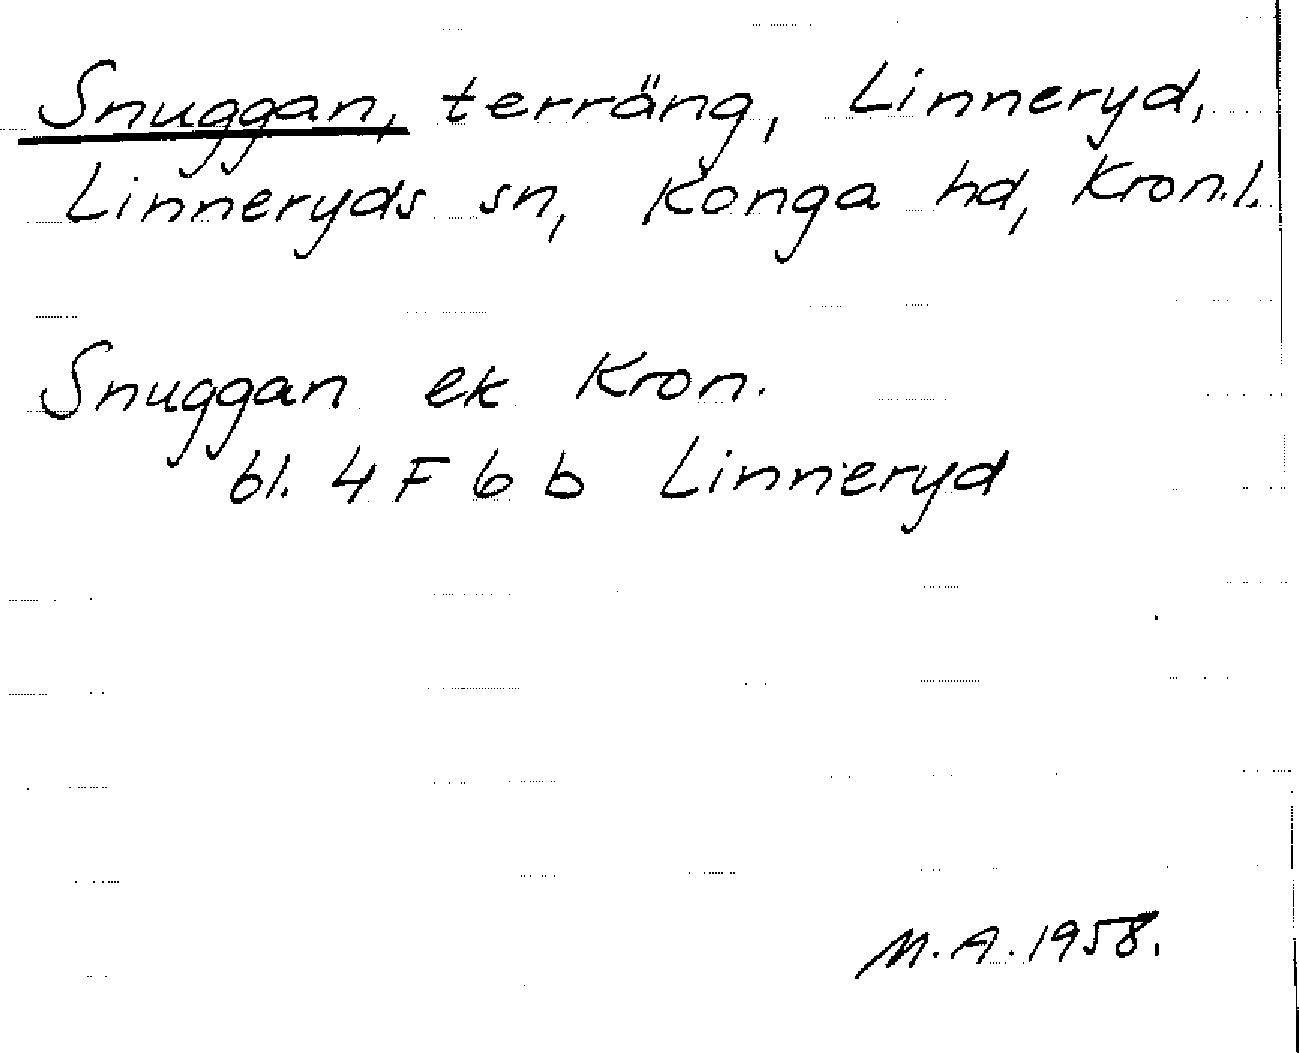 Snuggan, terräng, Linneryd,
Linneryds sn, Konga hd, Kron.l.
Snuggan ek Kron.
bl. 4 F 6 b Linneryd
M.A. 1958.